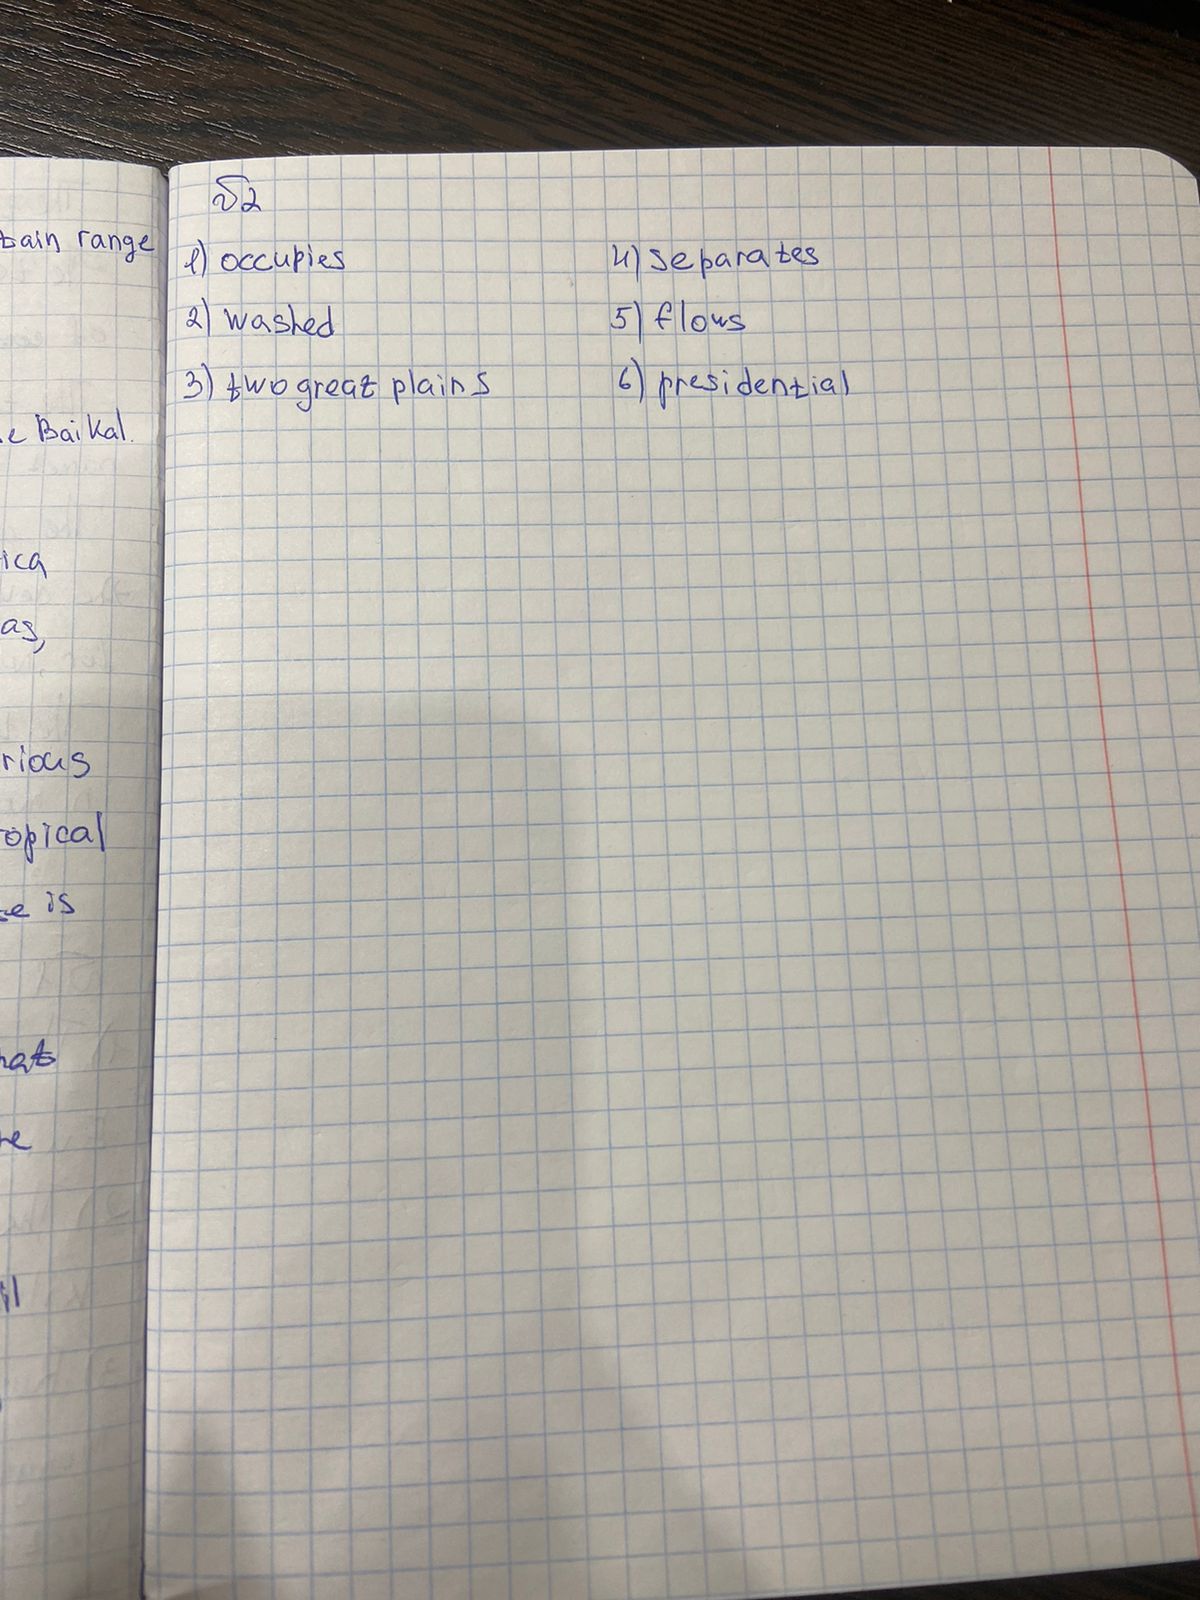 tain range
e Baikal.
ica
as,
rious
opical
se is
hat
re
il
№2
1) occupies
2) washed
3) two great plains
4) separates
5) flows
6) presidential